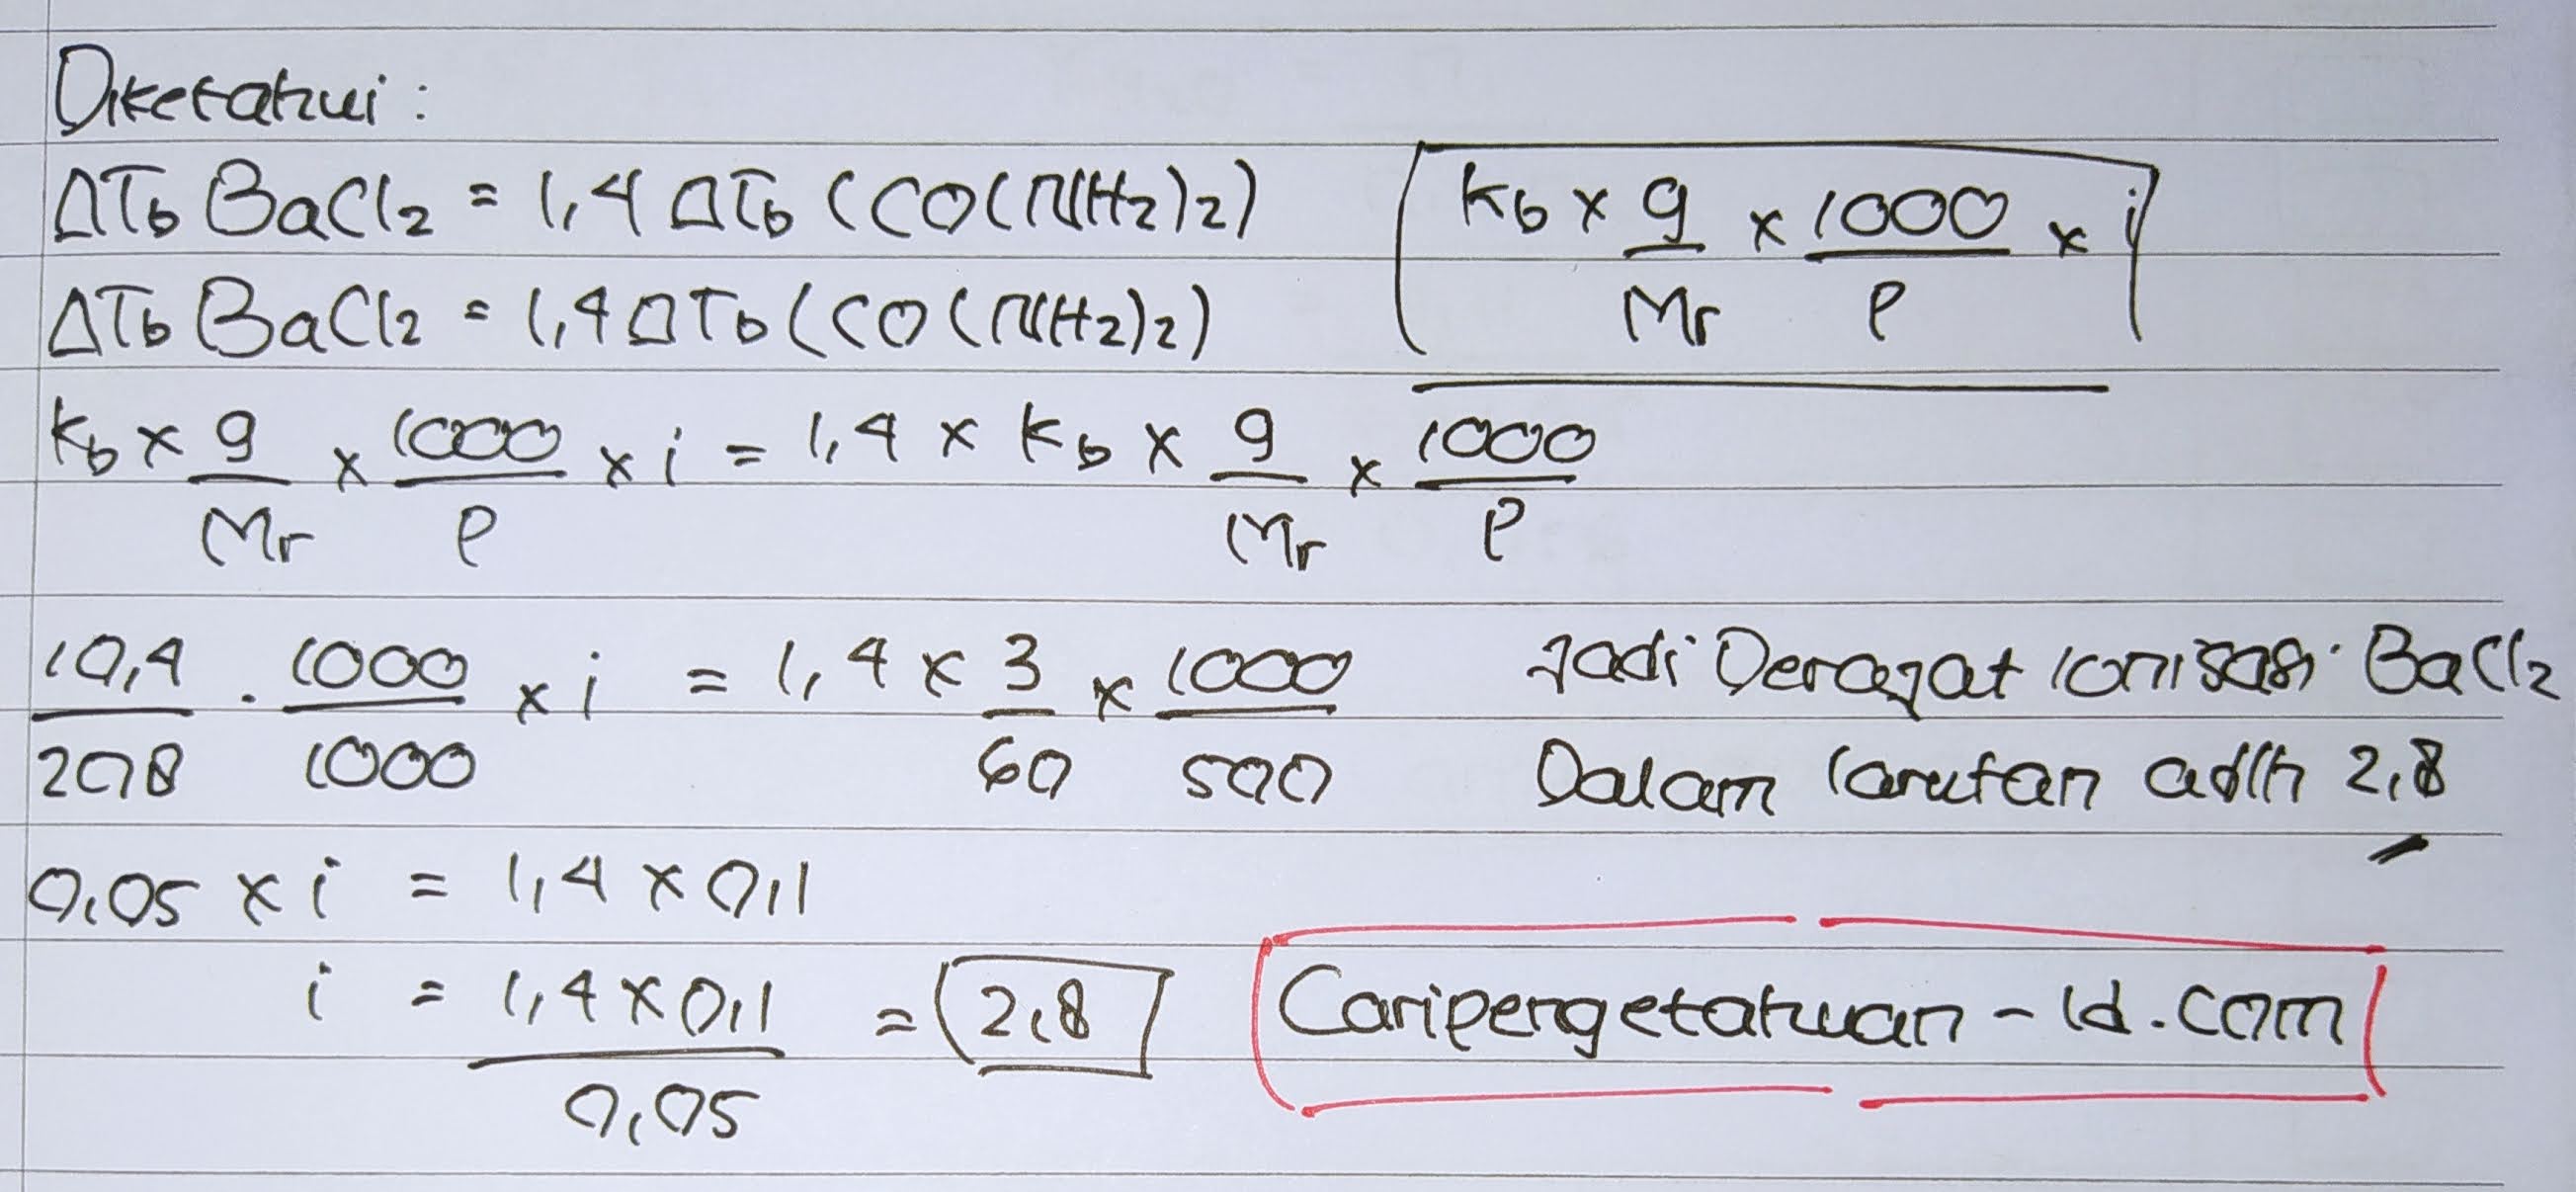 Diketahui :
ΔTb BaCl2 = 1,4 ΔTb (CO(NH2)2)
Kb x g/Mr x 1000/P x i
ΔTb BaCl2 = 1,4 ΔTb (CO(NH2)2)
Kb x g/Mr x 1000/P x i = 1,4 x Kb x g/Mr x 1000/P
10,4/208 . 1000/1000 x i = 1,4 x 3/60 x 1000/500
Jadi Derajat ionisasi BaCl2
Dalam larutan adlh 2,8
0,05 x i = 1,4 x 0,1
i = 1,4 x 0,1/0,05 = 2,8
Caripengetahuan - Id.com